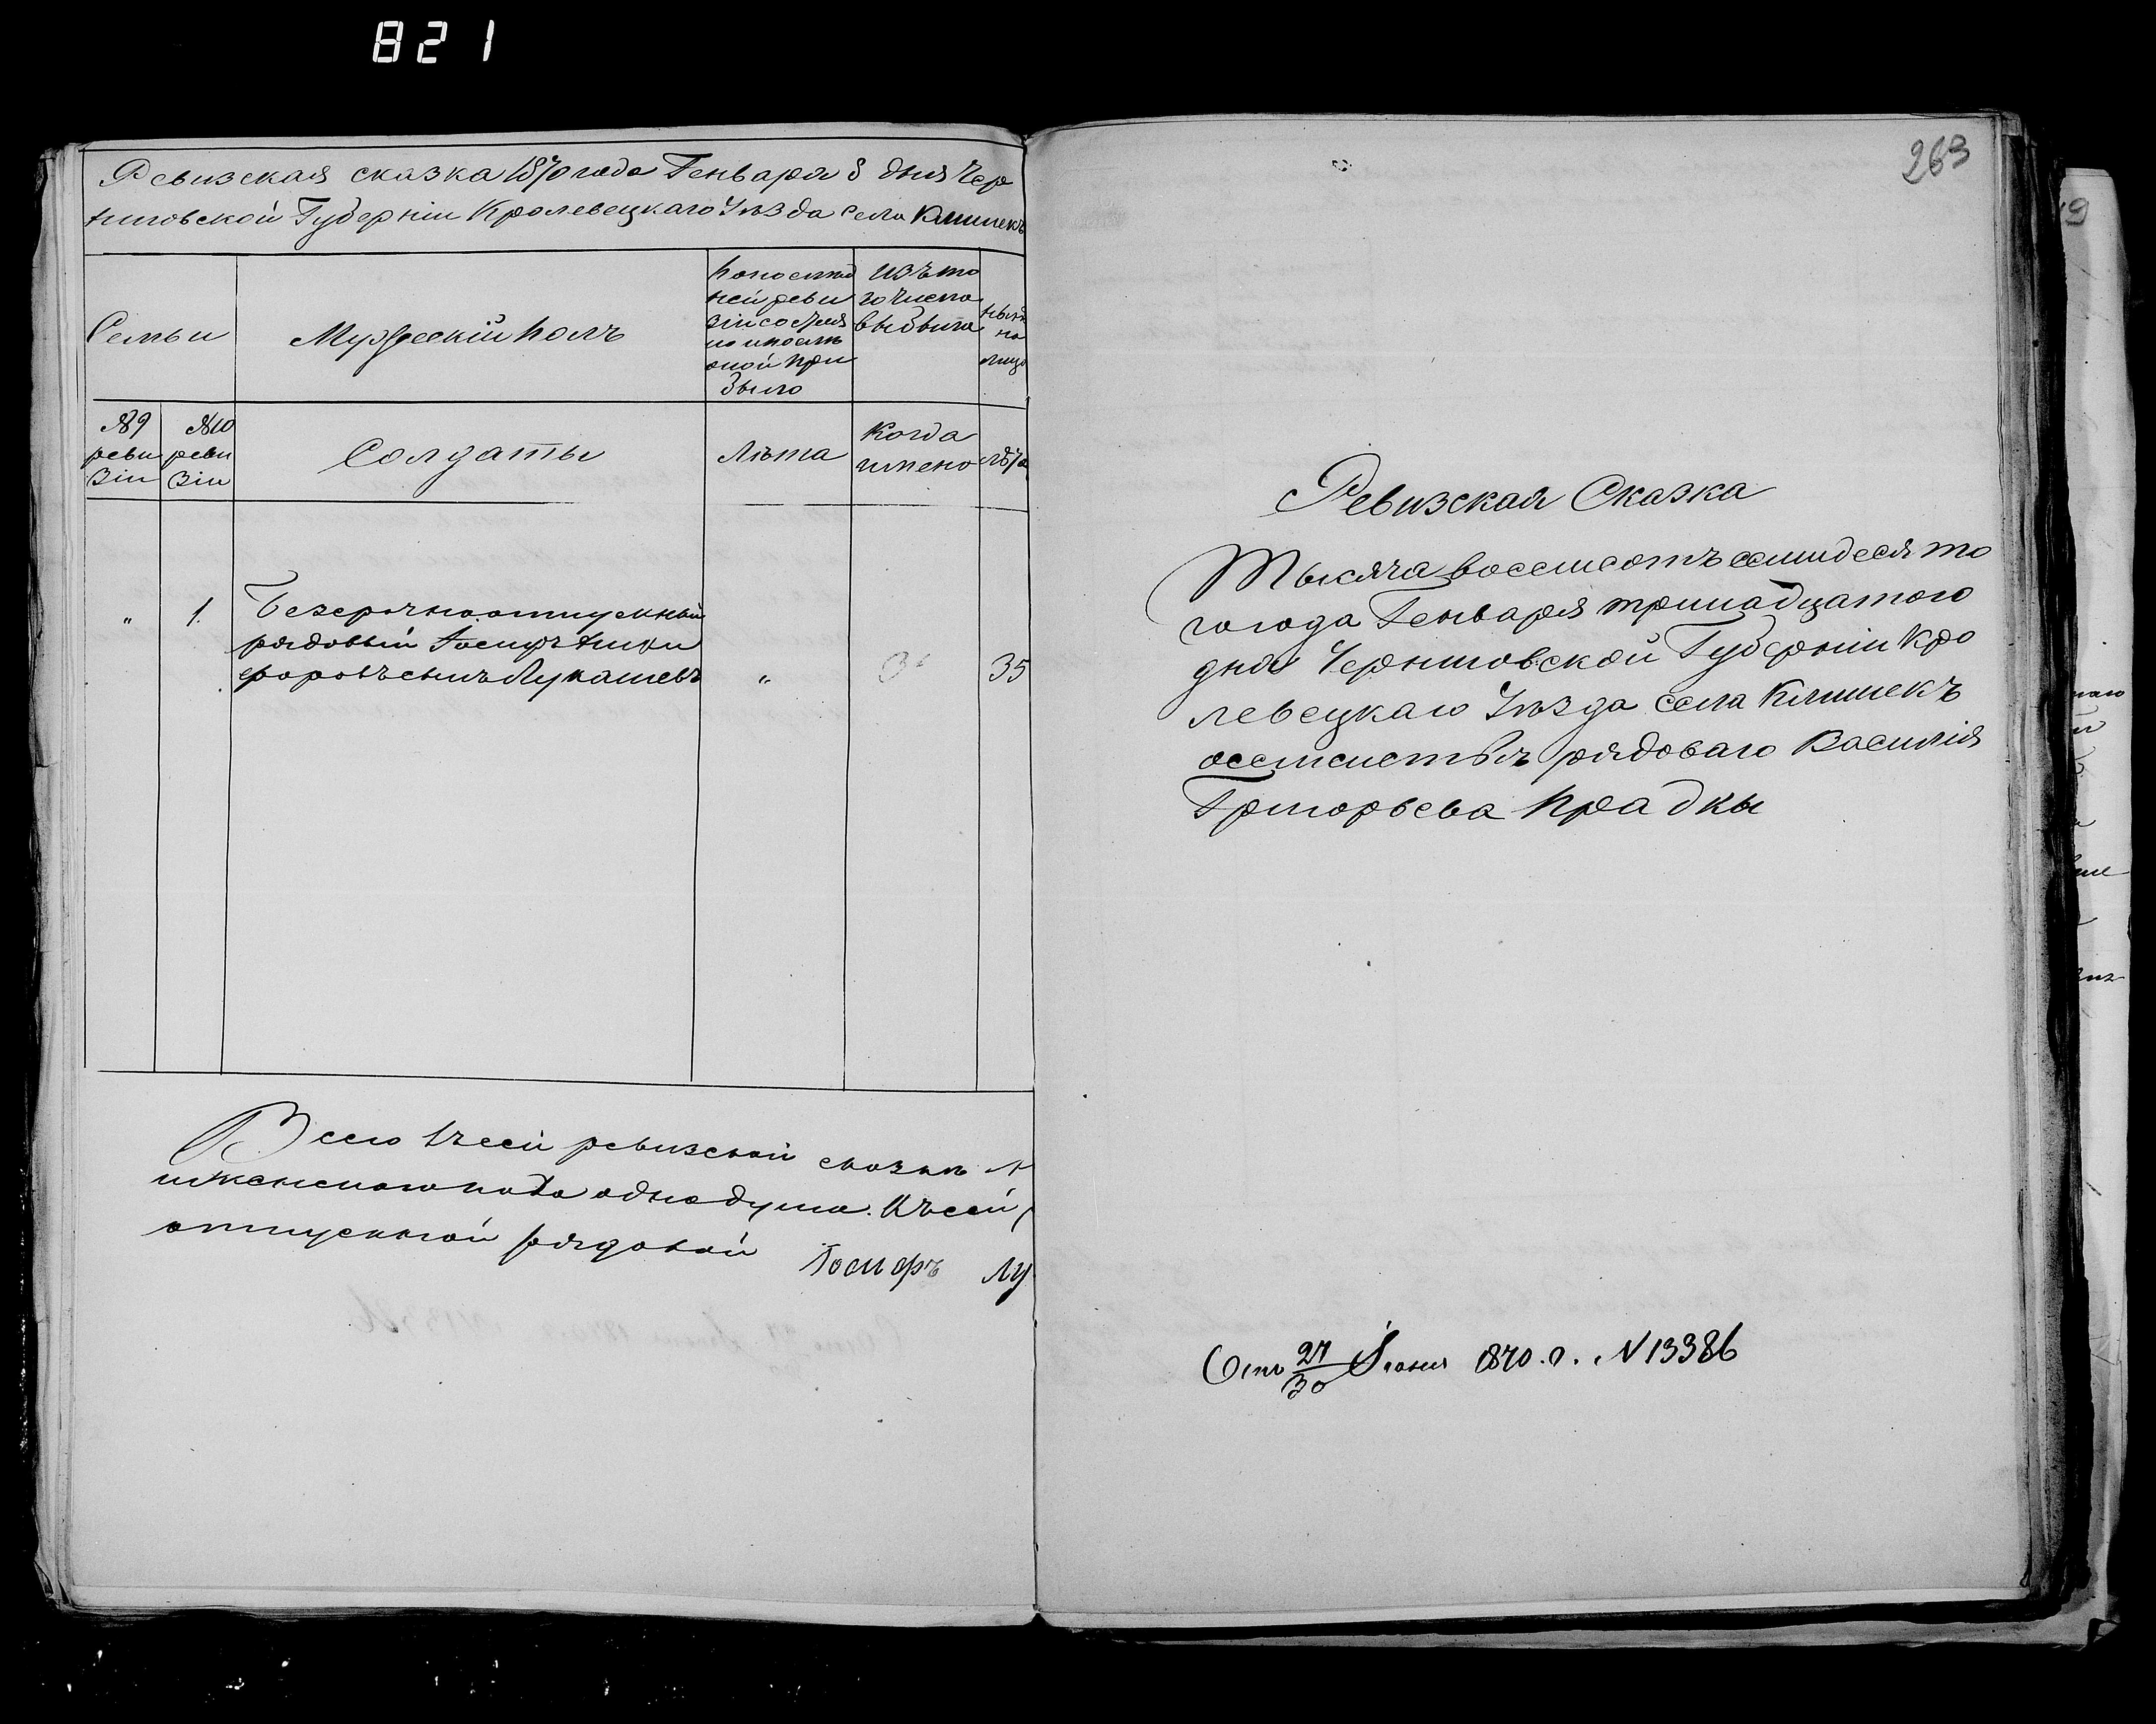 821
Ревизская сказка 1870 года Генваря 8 дня Чер
ниговской Губерніи Кролевецкаго Уѣзда села Клишекъ
Семьи
Мужескій полъ
По послѣд
ней реви
зіи состоя
ло и послѣ
оной при
было
Изъ то
го числа
выбыло
Нынѣ
на
лицо
№9
реви
зіи
№10
реви
зіи
Солдаты
Лѣта
Когда
имено
Лѣта
"
1.
Безсрочноотпускный
рядовый Іосифъ Ники
форовъ сынъ Лукашевъ
"
35
Всего въ сей ревизской сказкѣ
и женскаго пола одна душа. Къ сей
отпускной рядовой Іосифъ Лу
263
Ревизская Сказка
Тысяча восемсотъ семидесято
го года Генваря тринадцатого
дня Черниговской Губерніи Кро
левецкаго Уѣзда села Клишекъ
рядоваго Василія
Григорьева Прадки
27
30
Іюня 1870. г. N 13386